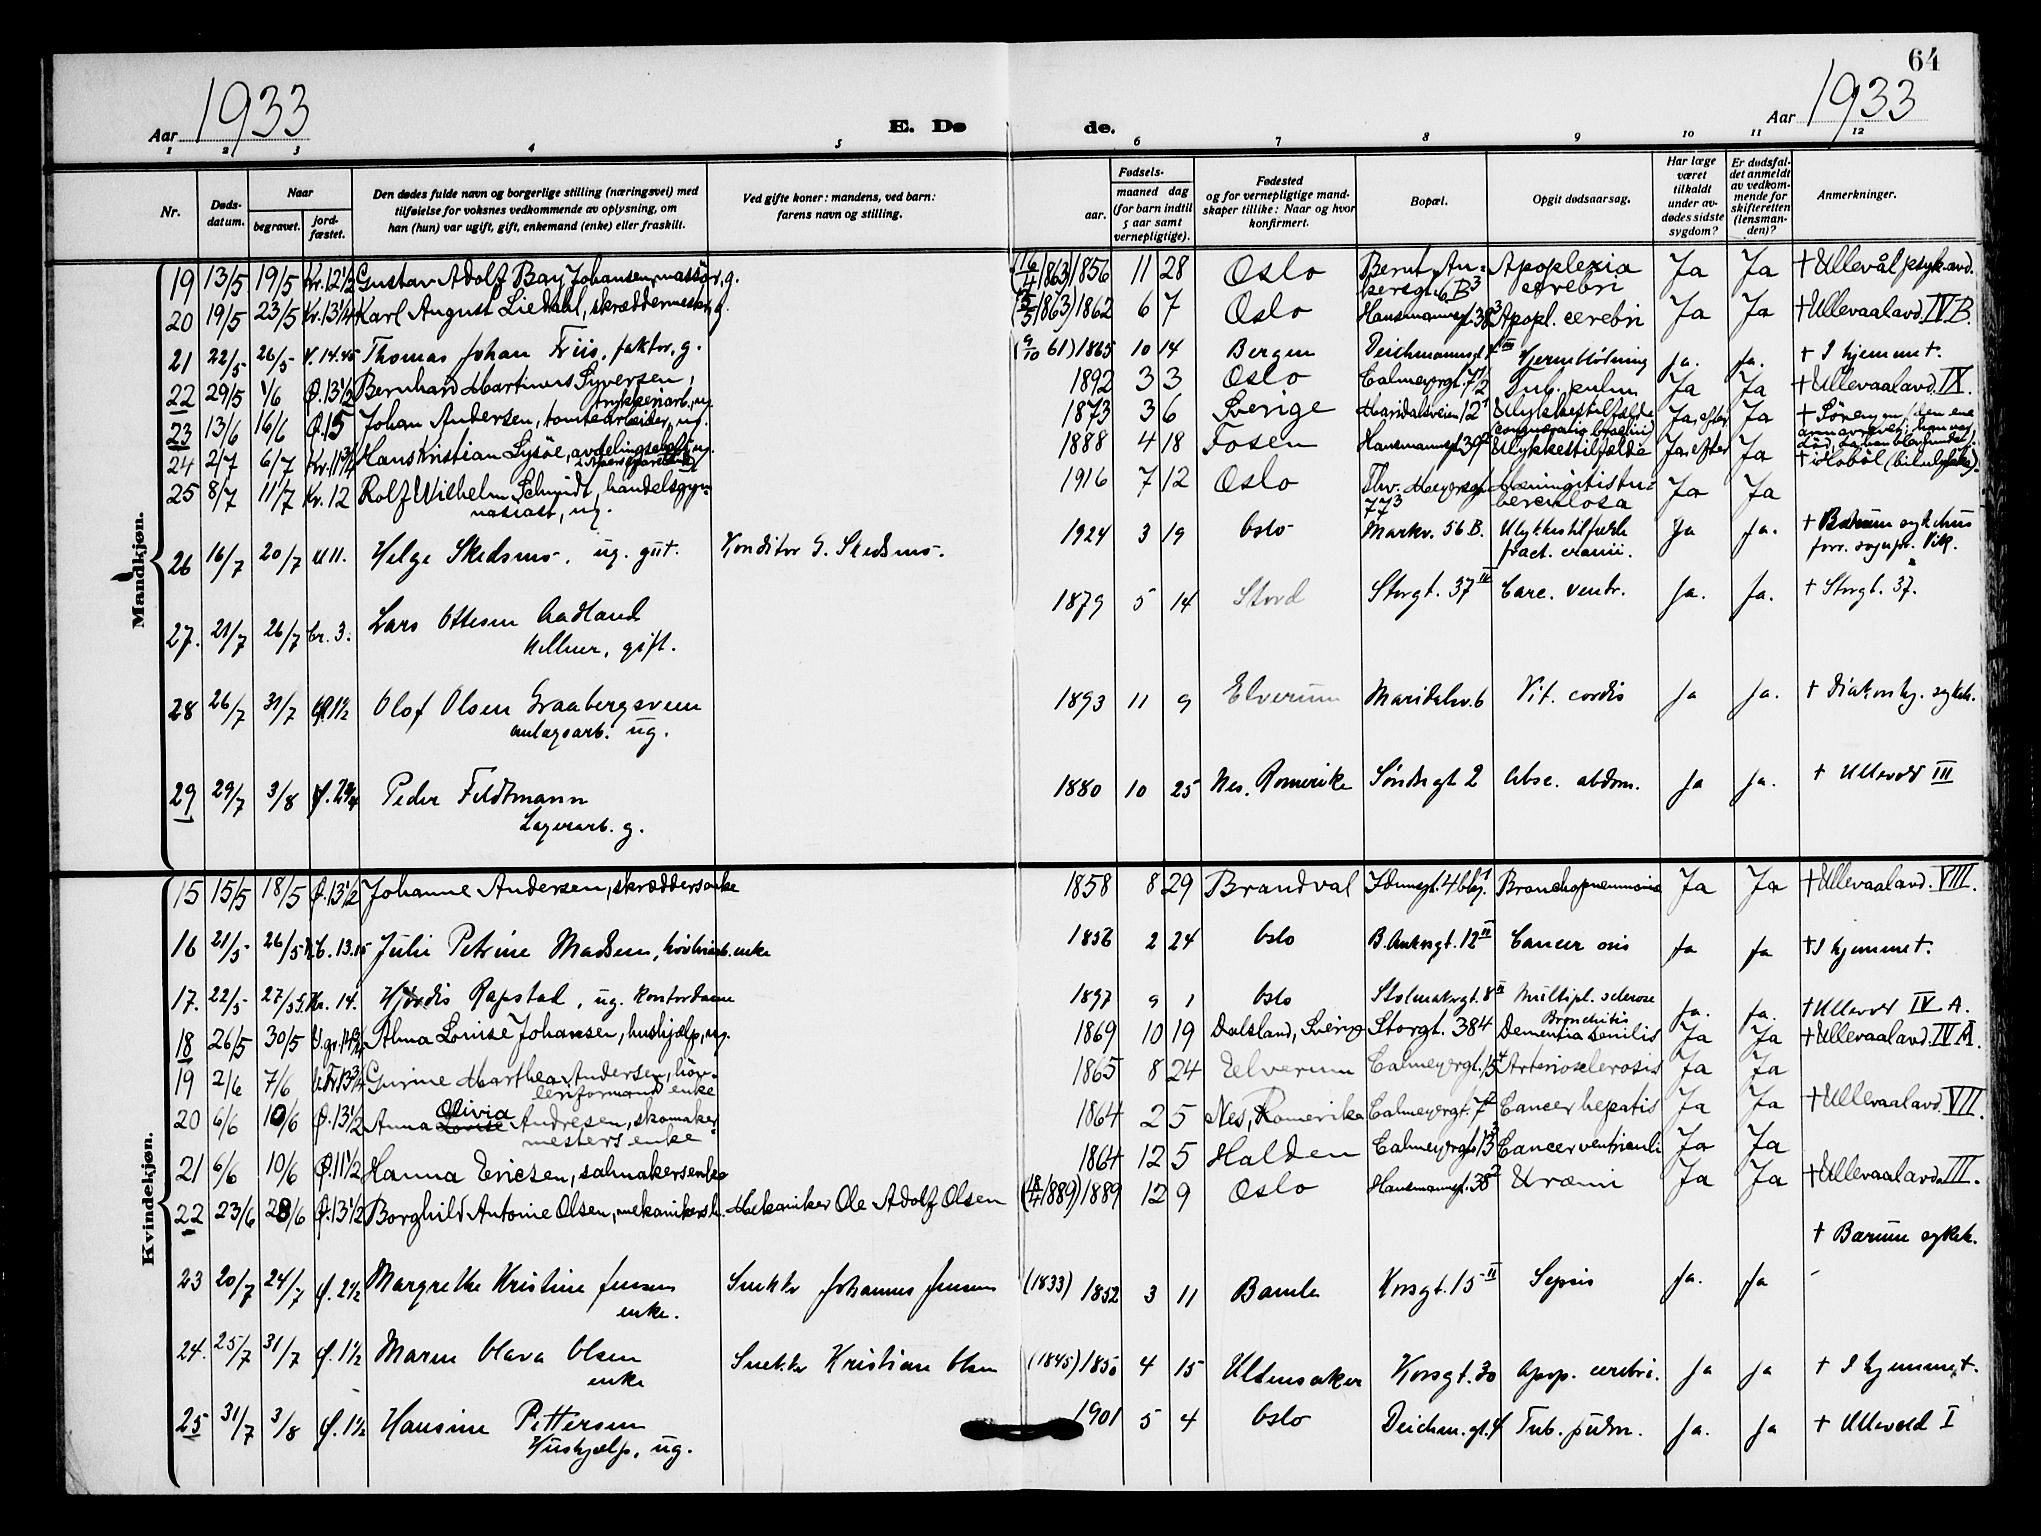 64
Aar 1933
E. Døde.
Aar 1933
1 2 3 4 5 6 7 8 9 10 11 12
Nr.
Døds-datum.
Naar
begravet.
jord-fæstet.
Den dødes fulde navn og borgerlige stilling (næringsvei) med
tilføielse for voksnes vedkommende av oplysning, om
han (hun) var ugift, gift, enkemand (enke) eller fraskilt.
Ved gifte koner: mandens, ved barn:
farens navn og stilling.
Fødsels-
aar.
maaned dag
(for barn indtil
5 aar samt
vernepligtige).
Fødested
og for vernepligtige mand-
skaper tillike: Naar og hvor
konfirmert.
Bopæl.
Opgit dødsaarsag.
Har læge
været
tilkaldt
under av-
dødes sidste
sygdom?
Er dødsfal-
det anmeldt
av vedkom-
mende for
skifteretten
(lensman-
den)?
Anmerkninger.
Mandkjøn.
19 13/5 19/5 Kr. 12 1/2 Gustav Adolf Bay Johansen, massør, g. (16/4 1863) 1856 11 28 Oslo Bernt Ankersgt. 6 B3 Apoplexia cerebri Ja Ja † Ullevål psyk. avd.
20 19/5 23/5 Kr. 13 1/4 Karl August Liedahl, skræddermester, g. 1862 6 7 Oslo Hausmannsgt. 38 Apopl. cerebri Ja Ja † Ullevaal avd. IV B.
21 22/5 26/5 V. 14.45 Thomas Johan Friis, faktor, g. (9/10 61) 1865 10 14 Bergen Deichmannsgt. Hjerneblødning Ja. Ja. † I hjemmet.
22 29/5 1/6 Ø. 13 1/2 Bernhard Martinius Syversen, trykkeriarb., ug. 1892 3 3 Oslo Calmeyergt. 7 2 Tub. pulm. Ja Ja † Ullevaal avd. IX.
23 13/6 16/6 Ø. 15 Johan Andersen, tomtearbeider, ug. 1873 3 6 Sverige Maridalsveien 12 1 Ulykkestilfælde Ja, efter Ja
24 2/7 6/7 Kr. 11 3/4 Hans Kristian Lysøe, ug. 1888 4 18 Fosen Hausmannsgt. 39 Ulykkestilfælde Ja, efter Ja † i Hobøl (bilulykke).
25 8/7 11/7 Kr. 12 Rolf Wilhelm Schmidt, handelsgym-
nasiast, ug. 1916 7 12 Oslo Thv. Meyersgt. 77 3 Meningitis tu-
berculosa Ja Ja
26 16/7 20/7 11. Helge Skedsmo. ug. gut. Konditor G. Skedsmo. 1924 3 19 Oslo Markv. 56 B. Ulykkestilfælle
fract. cranii. Ja Ja. † Bærum sykehus
forr. sogupr. Vik.
27. 21/7 26/7 Cr. 3. Lars Ottesen Aadland
kellner, gift. 1879 5 14 Stord Storgt. 37 IV Carc. ventr. Ja. Ja. † Storgt. 37.
28 26/7 31/7 Ø. 1 1/2 Olof Olsen Graabergsveen
anlægsarb. ug. 1893 11 9 Elverum Maridalsv. 6 Vit. cordis Ja Ja. † Diakonhj. sykeh.
29 29/7 3/8 Peder Feldtmann
Lagerarb. g. 1880 10 25 Nes. Romerike Søndregt 2 Absc. abdom. Ja Ja. † Ullevål III
Kvindekjøn.
15 15/5 18/5 Ø. 13 1/2 Johanne Andersen, skræddersenke 1858 8 29 Brandval Bronchopneumonia Ja Ja † Ullevaal avd. VIII.
16 21/5 26/5 13.15 Julie Petrine Madsen, enke 1856 2 24 Oslo B. Ankersgt. 12 II Cancer oris Ja Ja † I hjemmet.
17. 22/5 27/5 14. Hjørdis Rapstad, ug. kontordame 1897 9 1 Oslo Stolmakergt. 8 II Multipl. sclerose Ja. Ja. † Ullevål IV A.
18 26/5 30/5 V. gr. Alma Louise Johansen, hushjelp, ug. 1869 10 19 Dalsland, Sverige Storgt. 38 4 Bronchitis
Dementia senilis Ja Ja † Ullevaal avd. IV A.
19 2/6 7/6 Gurine Marthea Andersen, høv-
leriformand enke 1865 8 24 Elverum Calmeyergt. 15 4 Arteriosclerosis Ja Ja
20 6/6 10/6 Ø. 13 1/2 Anna Louise Olivia Andresen, skomaker
mesters enke 1864 2 5 Nes, Romerike Calmeyergt. 7 2 Cancer hepatis Ja Ja † Ullevaal avd. VII.
21 6/6 10/6 Ø. 11 1/2 Hanna Ericsen, salmakersenke 1864 12 5 Halden Calmeyergt. 13 3 Cancer ventriculi Ja Ja
22 23/6 28/6 Ø. 13 1/2 Borghild Antonie Olsen, mekanikersh. Mekaniker Ole Adolf Olsen (1889) 1889 12 9 Oslo Hausmannsgt. 38 2 Uræmi Ja Ja † Ullevaal avd. III.
23 20/7 24/7 Ø. 2 1/2 Margrethe Kristine Jensen
enke. Snekker Johannes Jensen (1833) 1852 3 11 Bamle Korsgt. 15 II Sepsis Ja. Ja † Bærum sykeh.
24. 25/7 31/7 Ø. 1 1/2 Maren Olava Olsen
enke Snekker Kristian Olsen (1845) 1850 4 15 Ullensaker Korsgt. 30 Apop. cerebri. Ja Ja † I hjemmet.
25 31/7 3/8 Ø. 1 1/2 Hansine Pettersen
Hushjælp, ug. 1901 5 4 Oslo Deichm. gt. 4 Tub. pulm. Ja. Ja † Ullevold I